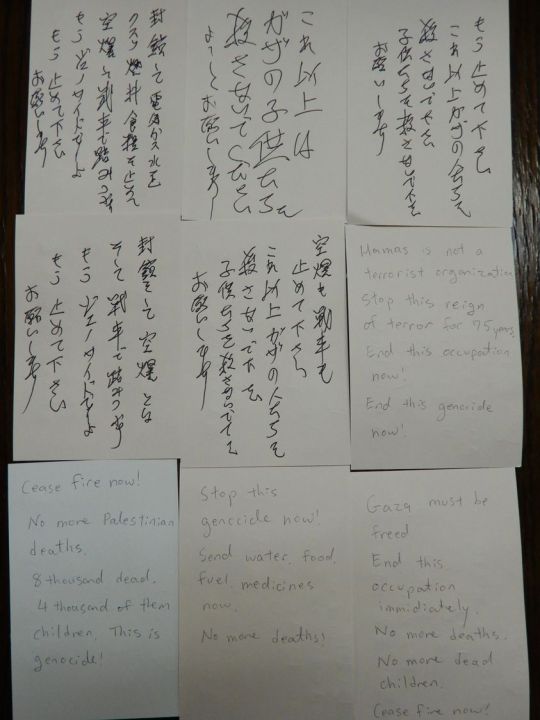 封鎖して電気ガス水を
クスリ燃料食糧を止めて
空爆し戦車で踏みつぶす
もうジェノサイドですよ
もう止めて下さい
お願いします
これ以上は
ガザの子供たちを
殺さないでください
お願いします
もう止めて下さい
これ以上ガザの人たちを
殺さないで下さい
子供たちを殺さないで下さい
お願いします
封鎖をして空爆とは
そして戦車で踏みつぶす
もうジェノサイドですよ
もう止めて下さい
お願いします
空爆も戦車も
止めて下さい
これ以上ガザの人たちを
殺さないで下さい
子供たちを殺さないで
お願いします
Hammas is not a
terrorist organization
Stop this reign
of terror for 75 years.
End this occupation
now!
End this genocide
now!
Cease fire now!
No more Palestinian
deaths.
8 thousand dead.
4 thousand of them
children. This is
genocide!
Stop this
genocide now!
Send water, food,
fuel, medicines
now.
No more deaths!
Gaza must be
freed
End this
occupation
immidiately.
No more deaths.
No more dead
children.
Cease fire now!